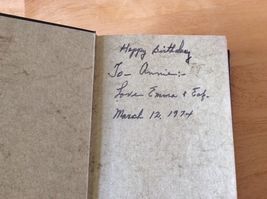 Happy Birthday
To - Annie:-
Love Emma &
March 12, 1974